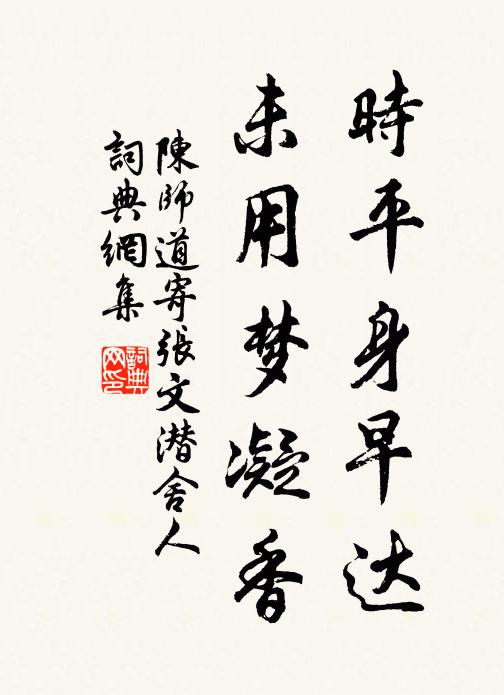 時平身早达
未用梦凝香
陳師道寄張文潜舍人
詞典網集
詞典
网印